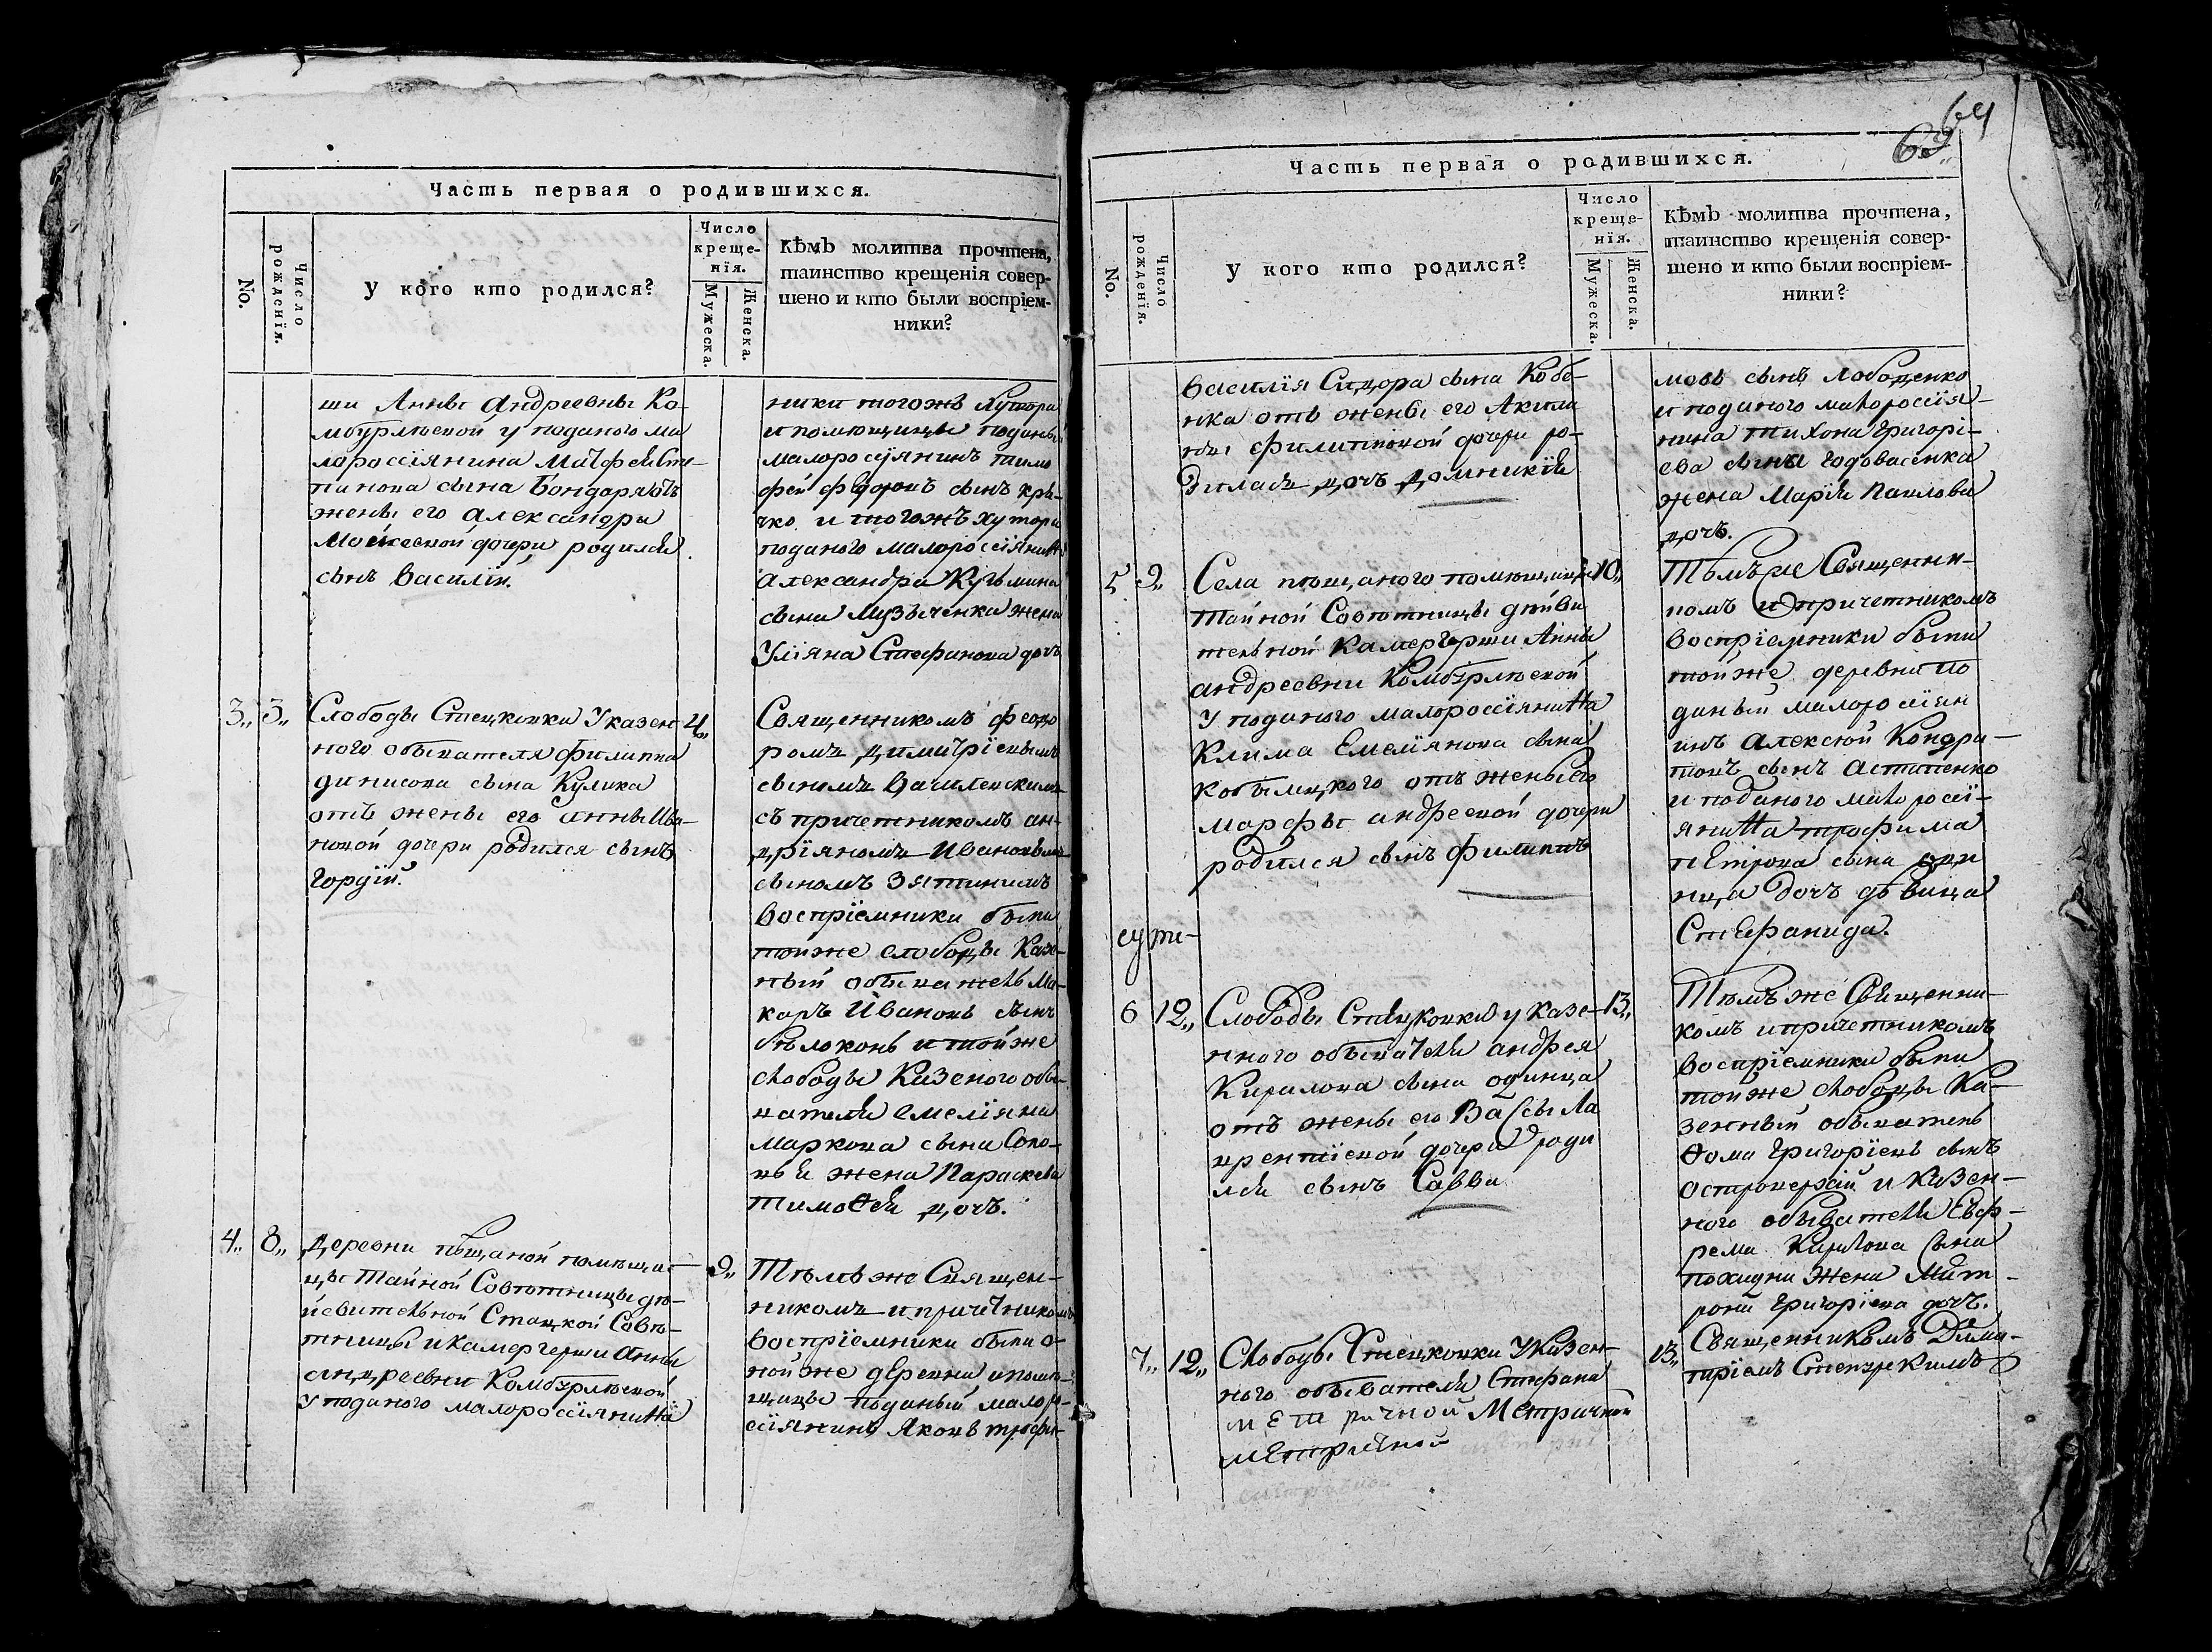 Часть первая о родившихся.
No.
Число рожденїя.
У кого кто родился?
Число
креще-
нїя.
Мужеска.
Женска.
Кѣмъ молитва прочтена,
таинство крещенїя совер-
шено и кто были воспрїем-
ники?
ши Анны Андреевны Ко-
мбурлѣевой у поданого ма
лороссїянина
сына Бондаря отъ
жены его Александры
дочери родился
сынъ Василїй.
ники тогожъ хутора
и помющицы поданый
малоросїянинъ тимо
фей сынъ кри-
чко и тогожъ хутора
поданого малороссїянина
Александра Кузьмина
сына Музыченка жена
Улїяна Стефанова дочь
3„ 3„ Слободы Стецковки У казен- 4„
ного обывателя филиппа
динисова сына Кулика
отъ жены его анны Ива-
новой дочери родился сынъ
Гордїй.
Священникомъ феодо
ромъ димитрїевымъ
сыномъ
съ причетникомъ ан-
дрїяномъ Ивановымъ
сыномъ
воспрїемники были
тойже слободы Казе-
ный обыватель Ма-
каръ Ивановъ сынъ
бѣлоконь и тойже
слободы Казеного обы-
вателя емелїяна
маркова сына Соло-
вья жена Параскева
тимоѳея дочъ.
4„ 8„ деревни пѣщаной помѣщи- 9„
цы Тайной Совѣтницы дѣ-
йствительной Стацкой Совѣ-
тницы и камергерши анны
андреевни Комбурлѣевой
у поданого малороссїянина
Тѣмъ же Священ-
никомъ и причетникомъ
воспрїемники были о-
нойже деревни и помѣ-
щицы поданый малоро-
сїянинъ Яковъ трофи-
64
63„
Часть первая о родившихся.
No.
Число рожденїя.
У кого кто родился?
Число
креще-
нїя.
Мужеска.
Женска.
Кѣмъ молитва прочтена,
таинство крещенїя совер-
шено и кто были воспрїем-
ники?
василїя Сидора сына Кобе-
нка отъ жены его Акили
ны филиповой дочери ро-
дилась дочъ домникїя
мовъ сынъ Лободенко
и поданого малороссїя-
нина тихона григорї-
ева сына годовасенка
жена Марїя Павлова
дочъ.
5 9„ Села пѣщаного помющицы 10„
тайной Совѣтницы дѣйстви
тельной Камергерши Анны
андреевни Комбурлѣевой
у поданого малороссїянина
Клима Емелїянова сына
кобылицкого отъ жены его
марфы андреевой дочери
родился сынъ филиппъ
Тѣмъже Священни-
комъ и причетникомъ
воспрїемники были
тойже деревни по
даный малоросїян
инъ алексѣй Кондра-
товъ сынъ астапенко
и поданого малоросї-
янина трофима
петрова сына оди
нца дочъ дѣвица
Стефанида.
6 12„ Слободы Стецковки у казе- 13„
нного обывателя андрея
Кирилова сына одинца
отъ жены его Васы ла
врентїевой дочери роди
лся сынъ Савва
Тѣмъ же Священни-
комъ и причетникомъ
воспрїемники были
тойже слободы Ка-
зенный обыватель
Ѳома григорїевъ сынъ
и казен-
ного обывателя Евф-
рема Кирилова сына
жена Мат-
рона григорїева дочъ.
7„ 12„ Слободы Стецковки У казен- 13„
ного обывателя Стефана
метричной Метричной
метричной
Священникомъ Дими-
трїемъ